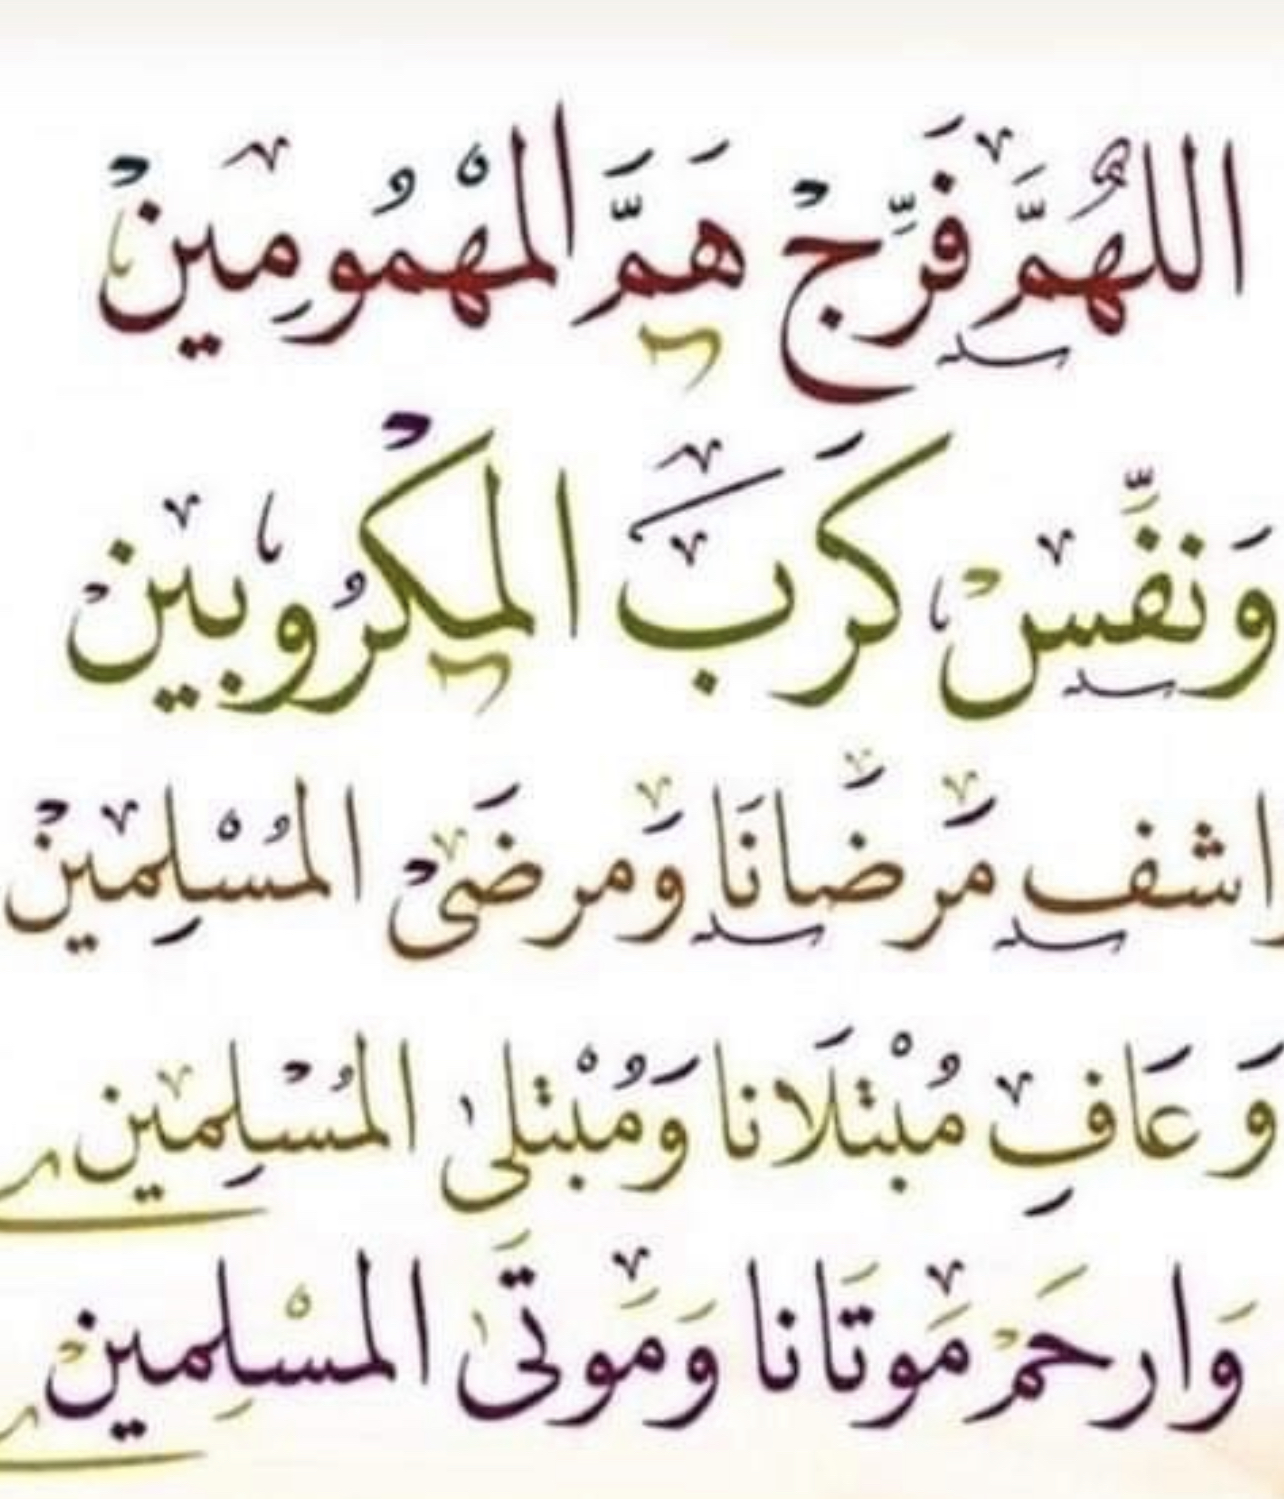 اللهُمَّ فَرِّجْ هَمَّ المْهُمُومِينْ
وَنفِّسْ كَرَبَ المكْرُوبينْ
واشف مَرضانَا وَمرضَىْ المُسْلِمينْ
وَعَافِ مُبْتَلَانا وَمُبْتلىٰ المُسْلِمين
وَارحَمْ مَوتَانا وَمَوتَىٰ المسْلِمينْ